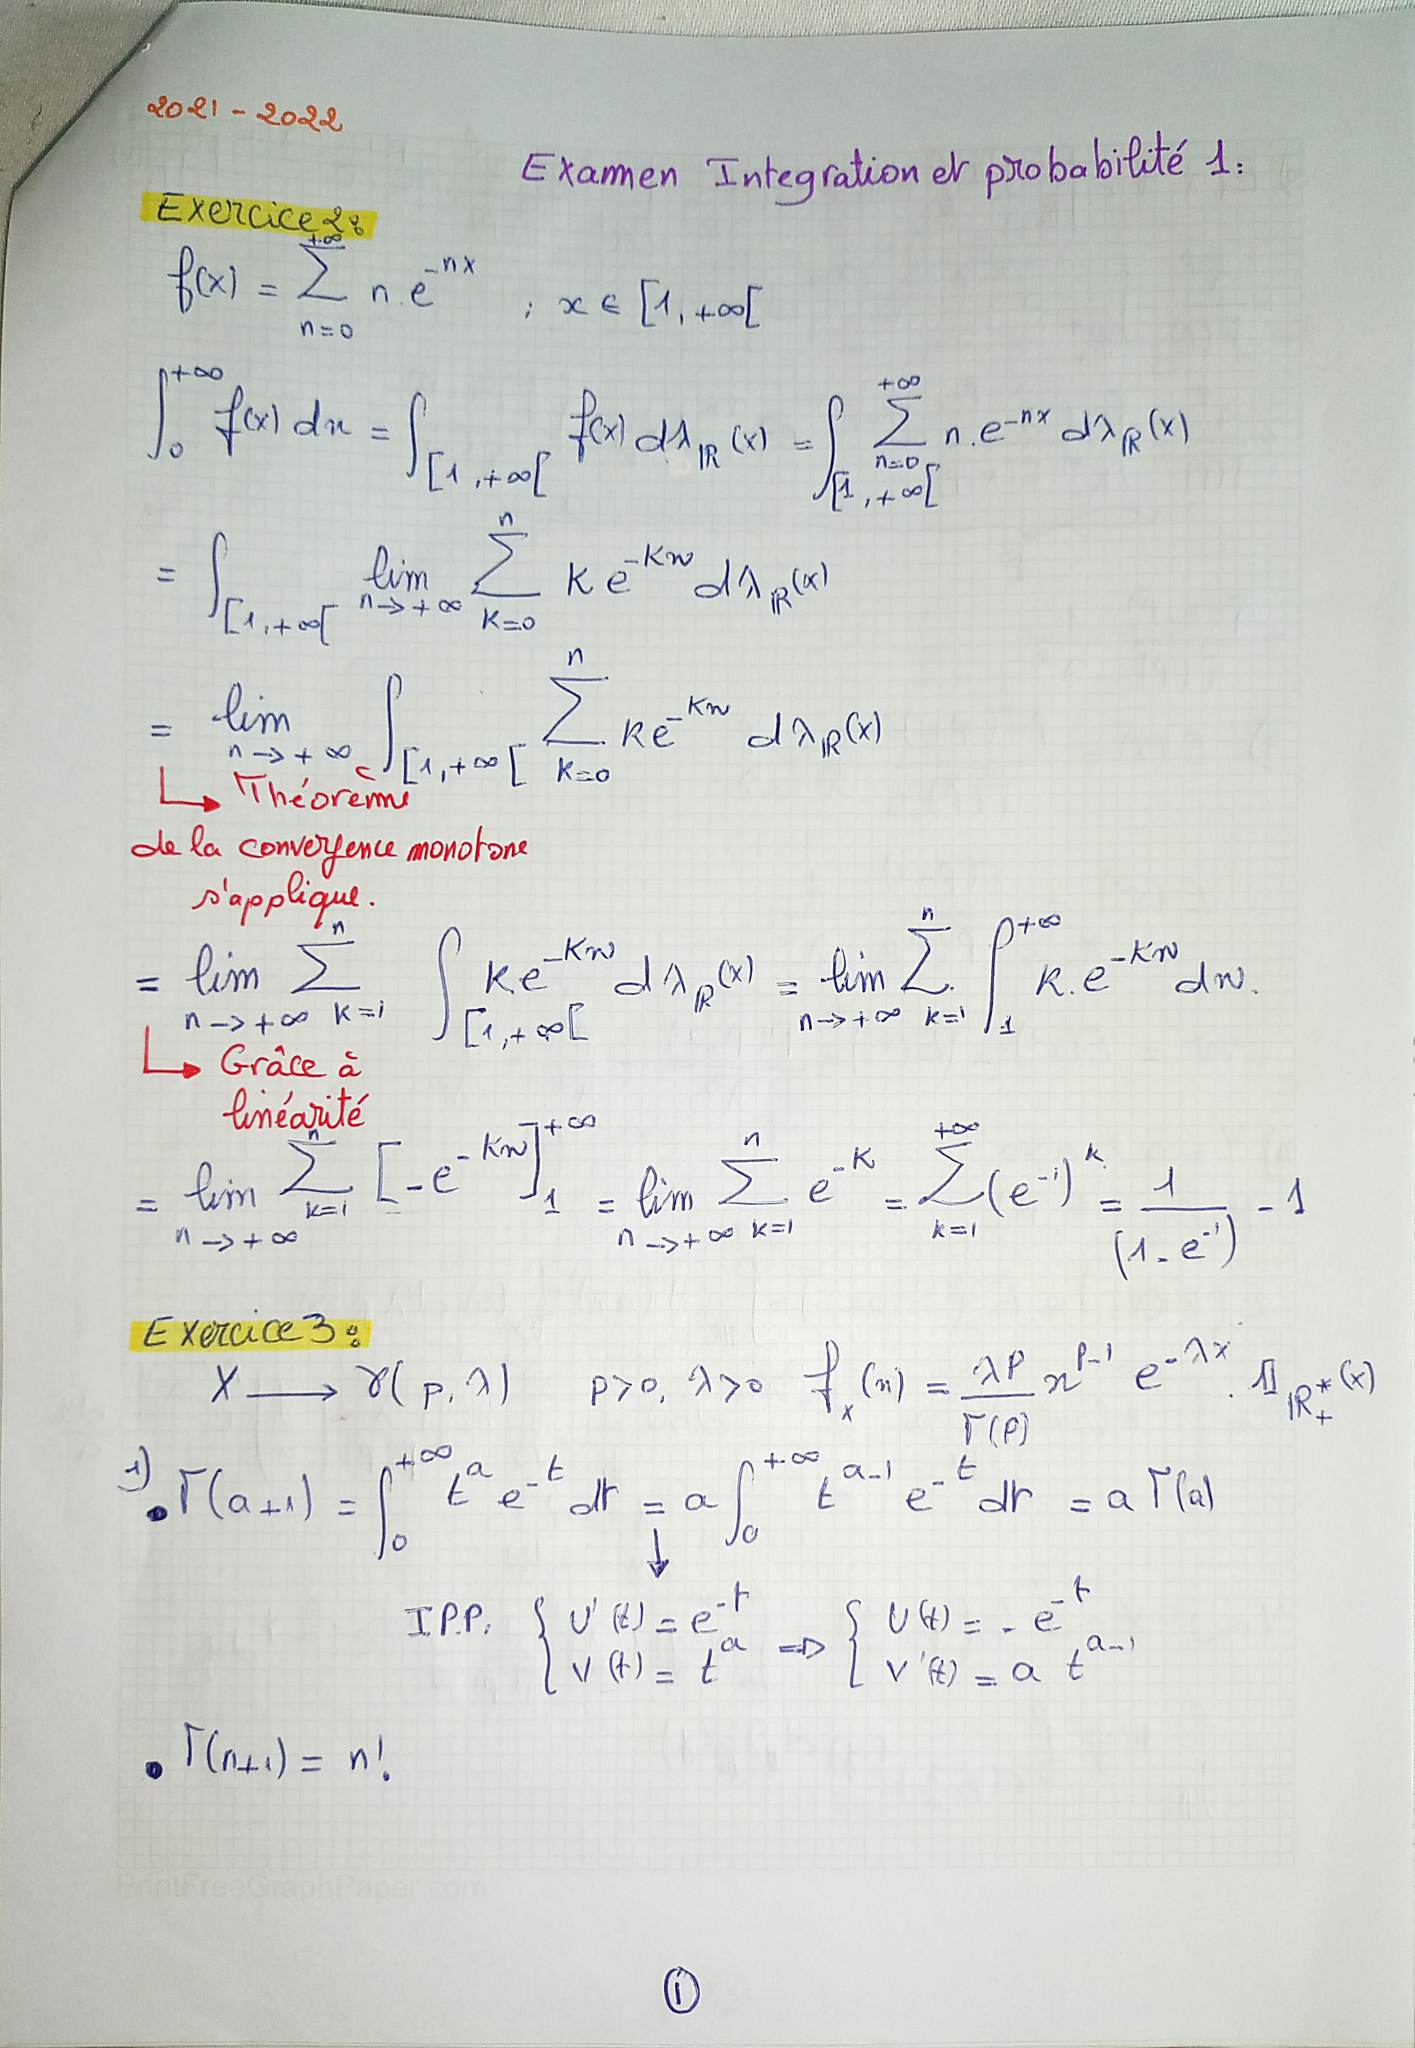 2021-2022
Examen Integration et probabilité 1:
Exercice 2:
f(x) = ∑_{n=0}^{+∞} n.e^{-nx} ; x ∈ [1,+∞[
∫_0^{+∞} f(x) dx = ∫_{[1,+∞[} f(x) dλ_ℝ(x) = ∫_{[1,+∞[} ∑_{n=0}^{+∞} n.e^{-nx} dλ_ℝ(x)
= ∫_{[1,+∞[} lim_{n→+∞} ∑_{k=0}^{n} k e^{-kx} dλ_ℝ(x)
= lim_{n→+∞} ∫_{[1,+∞[} ∑_{k=0}^{n} k e^{-kx} dλ_ℝ(x)
↳ Théorème
de la convergence monotone
s'applique.
= lim_{n→+∞} ∑_{k=1}^{n} ∫_{[1,+∞[} k.e^{-kx} dλ_ℝ(x) = lim_{n→+∞} ∑_{k=1}^{n} ∫_1^{+∞} k.e^{-kx} dx.
↳ Grâce à
linéarité
= lim_{n→+∞} ∑_{k=1}^{n} [-e^{-kx}]_1^{+∞} = lim_{n→+∞} ∑_{k=1}^{n} e^{-k} = ∑_{k=1}^{+∞} (e^{-1})^k = 1/(1-e^{-1}) - 1
Exercice 3:
X → γ(p,λ) p>0, λ>0 f_x(x) = λ^p/Γ(p) x^{p-1} e^{-λx}. 𝟙_{ℝ_+^*}(x)
1) • Γ(a+1) = ∫_0^{+∞} t^a e^{-t} dt = a ∫_0^{+∞} t^{a-1} e^{-t} dt = a Γ(a)
↓
I.P.P. { U'(t) = e^{-t} ⇒ { U(t) = -e^{-t}
V(t) = t^a V'(t) = a t^{a-1}
• Γ(n+1) = n!
PrintFreeGraphPaper.com
1